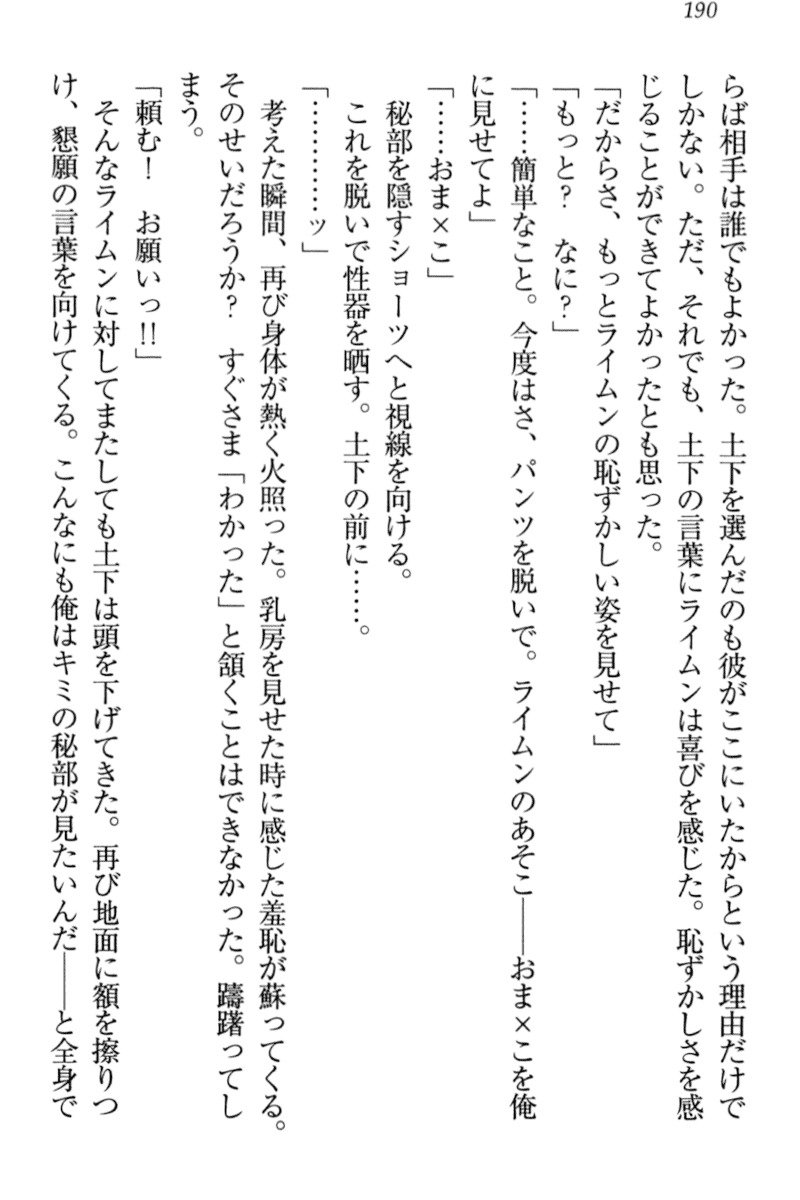 190
らば相手は誰でもよかった。土下を選んだのも彼がここにいたからという理由だけで
しかない。ただ、それでも、土下の言葉にライムンは喜びを感じた。恥ずかしさを感
じることができてよかったとも思った。
「だからさ、もっとライムンの恥ずかしい姿を見せて」
「もっと？　なに？」
「……簡単なこと。今度はさ、パンツを脱いで。ライムンのあそこ――おま×こを俺
に見せてよ」
「……おま×こ」
　秘部を隠すショーツへと視線を向ける。
　これを脱いで性器を晒す。土下の前に……。
「…………ッ」
　考えた瞬間、再び身体が熱く火照った。乳房を見せた時に感じた羞恥が蘇ってくる。
そのせいだろうか？　すぐさま「わかった」と頷くことはできなかった。躊躇ってし
まう。
「頼む！　お願いっ!!」
　そんなライムンに対してまたしても土下は頭を下げてきた。再び地面に額を擦りつ
け、懇願の言葉を向けてくる。こんなにも俺はキミの秘部が見たいんだ――と全身で